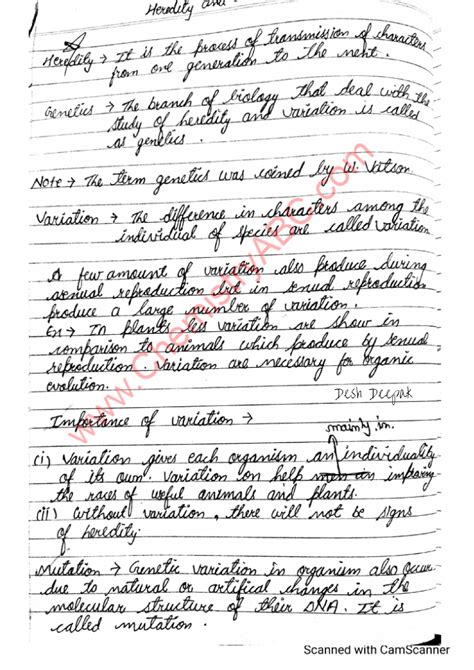 Heredity and
Heredity → It is the process of transmission of characters
from one generation to the next.
Genetics → The branch of biology that deal with the
study of heredity and variation is called
as genetics.
Note → The term genetics was coined by W. Vatson
Variation → The difference in characters among the
individual of species are called variation
A few amount of variation also produce during
asexual reproduction but in sexual reproduction
produce a large number of variation.
Ex → In plants less variation are show in
comparison to animals which produce by sexual
reproduction. Variation are necessary for organic
evolution.
Desh Deepak
Importance of variation →
mainly in.
(i) Variation gives each organism an individuality
of its own. Variation on help men in improving
the races of useful animals and plants.
(ii) Without variation, there will not be signs
of heredity.
Mutation → Genetic variation in organism also occur
due to natural or artifical changes in the
molecular structure of their DNA. It is
called mutation.
www.ChemistryABC.com
Scanned with CamScanner